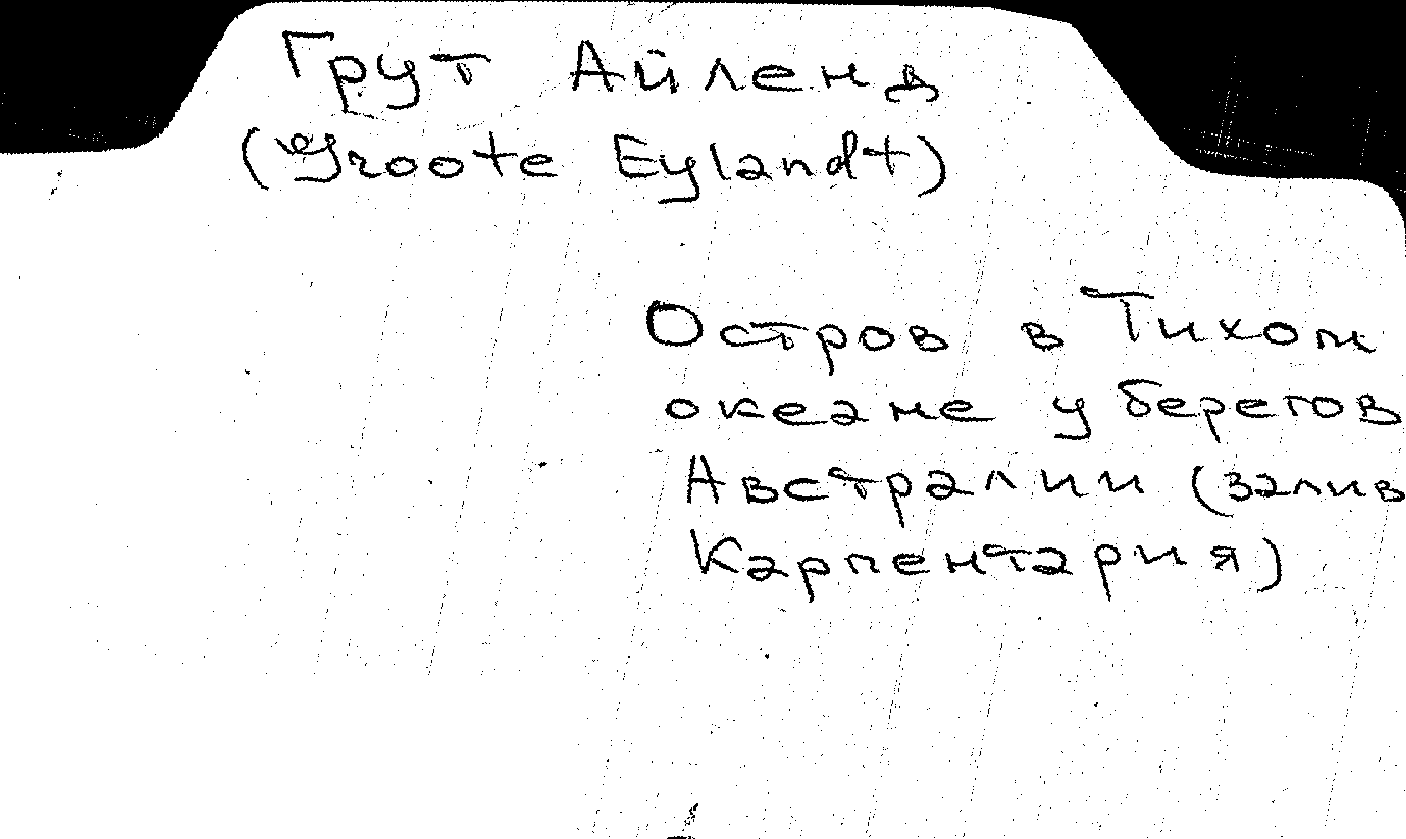 Грут Айленд
(Groote Eylandt)
Остров в Тихом
океане у берегов
Австралии (залив
Карпентария)